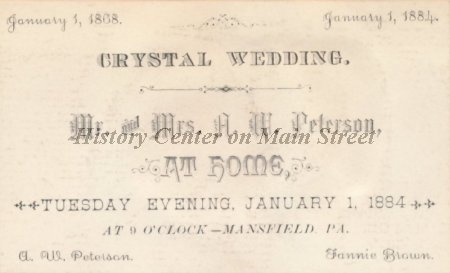 January 1, 1868. January 1, 1884.
CRYSTAL WEDDING.
Mr. and Mrs. A. W. Peterson,
History Center on Main Street
AT HOME,
TUESDAY EVENING, JANUARY 1, 1884
AT 9 O'CLOCK—MANSFIELD, PA.
A. W. Peterson. Fannie Brown.